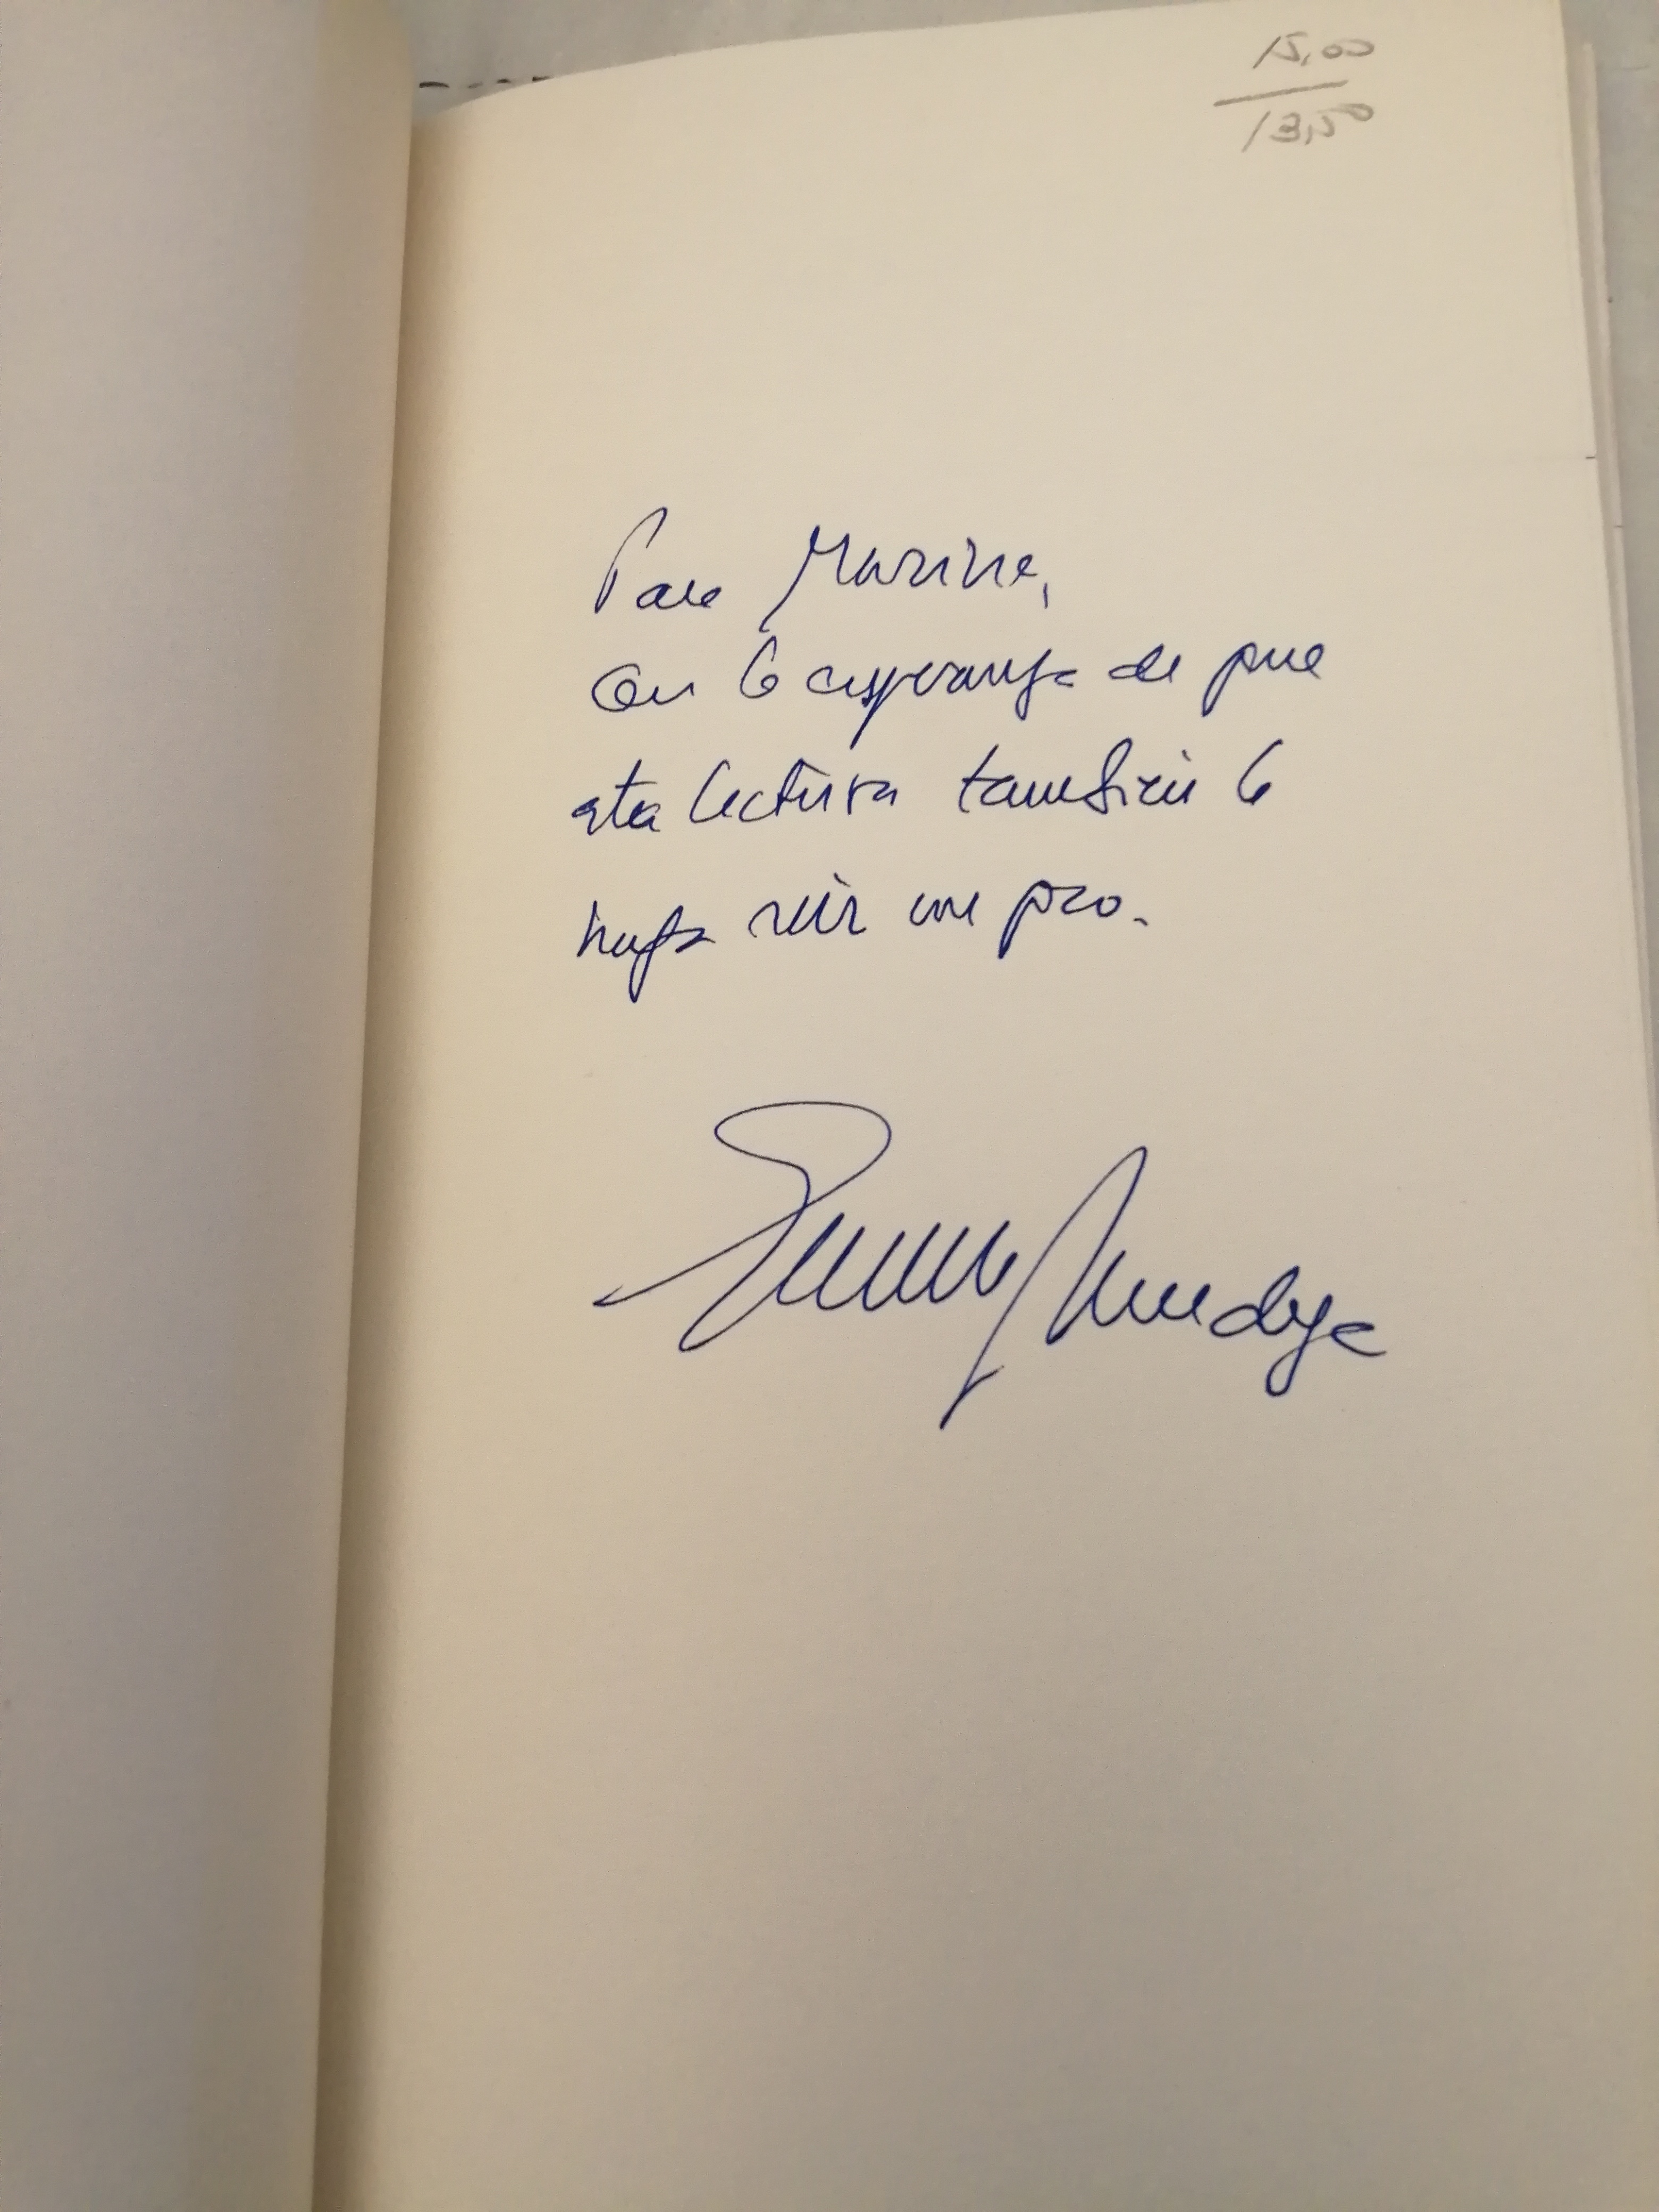 15,00
13,50
Para Marina,
Con la esperanza de que
esta lectura también la
haga reír un poco.
Eduardo Mendoza